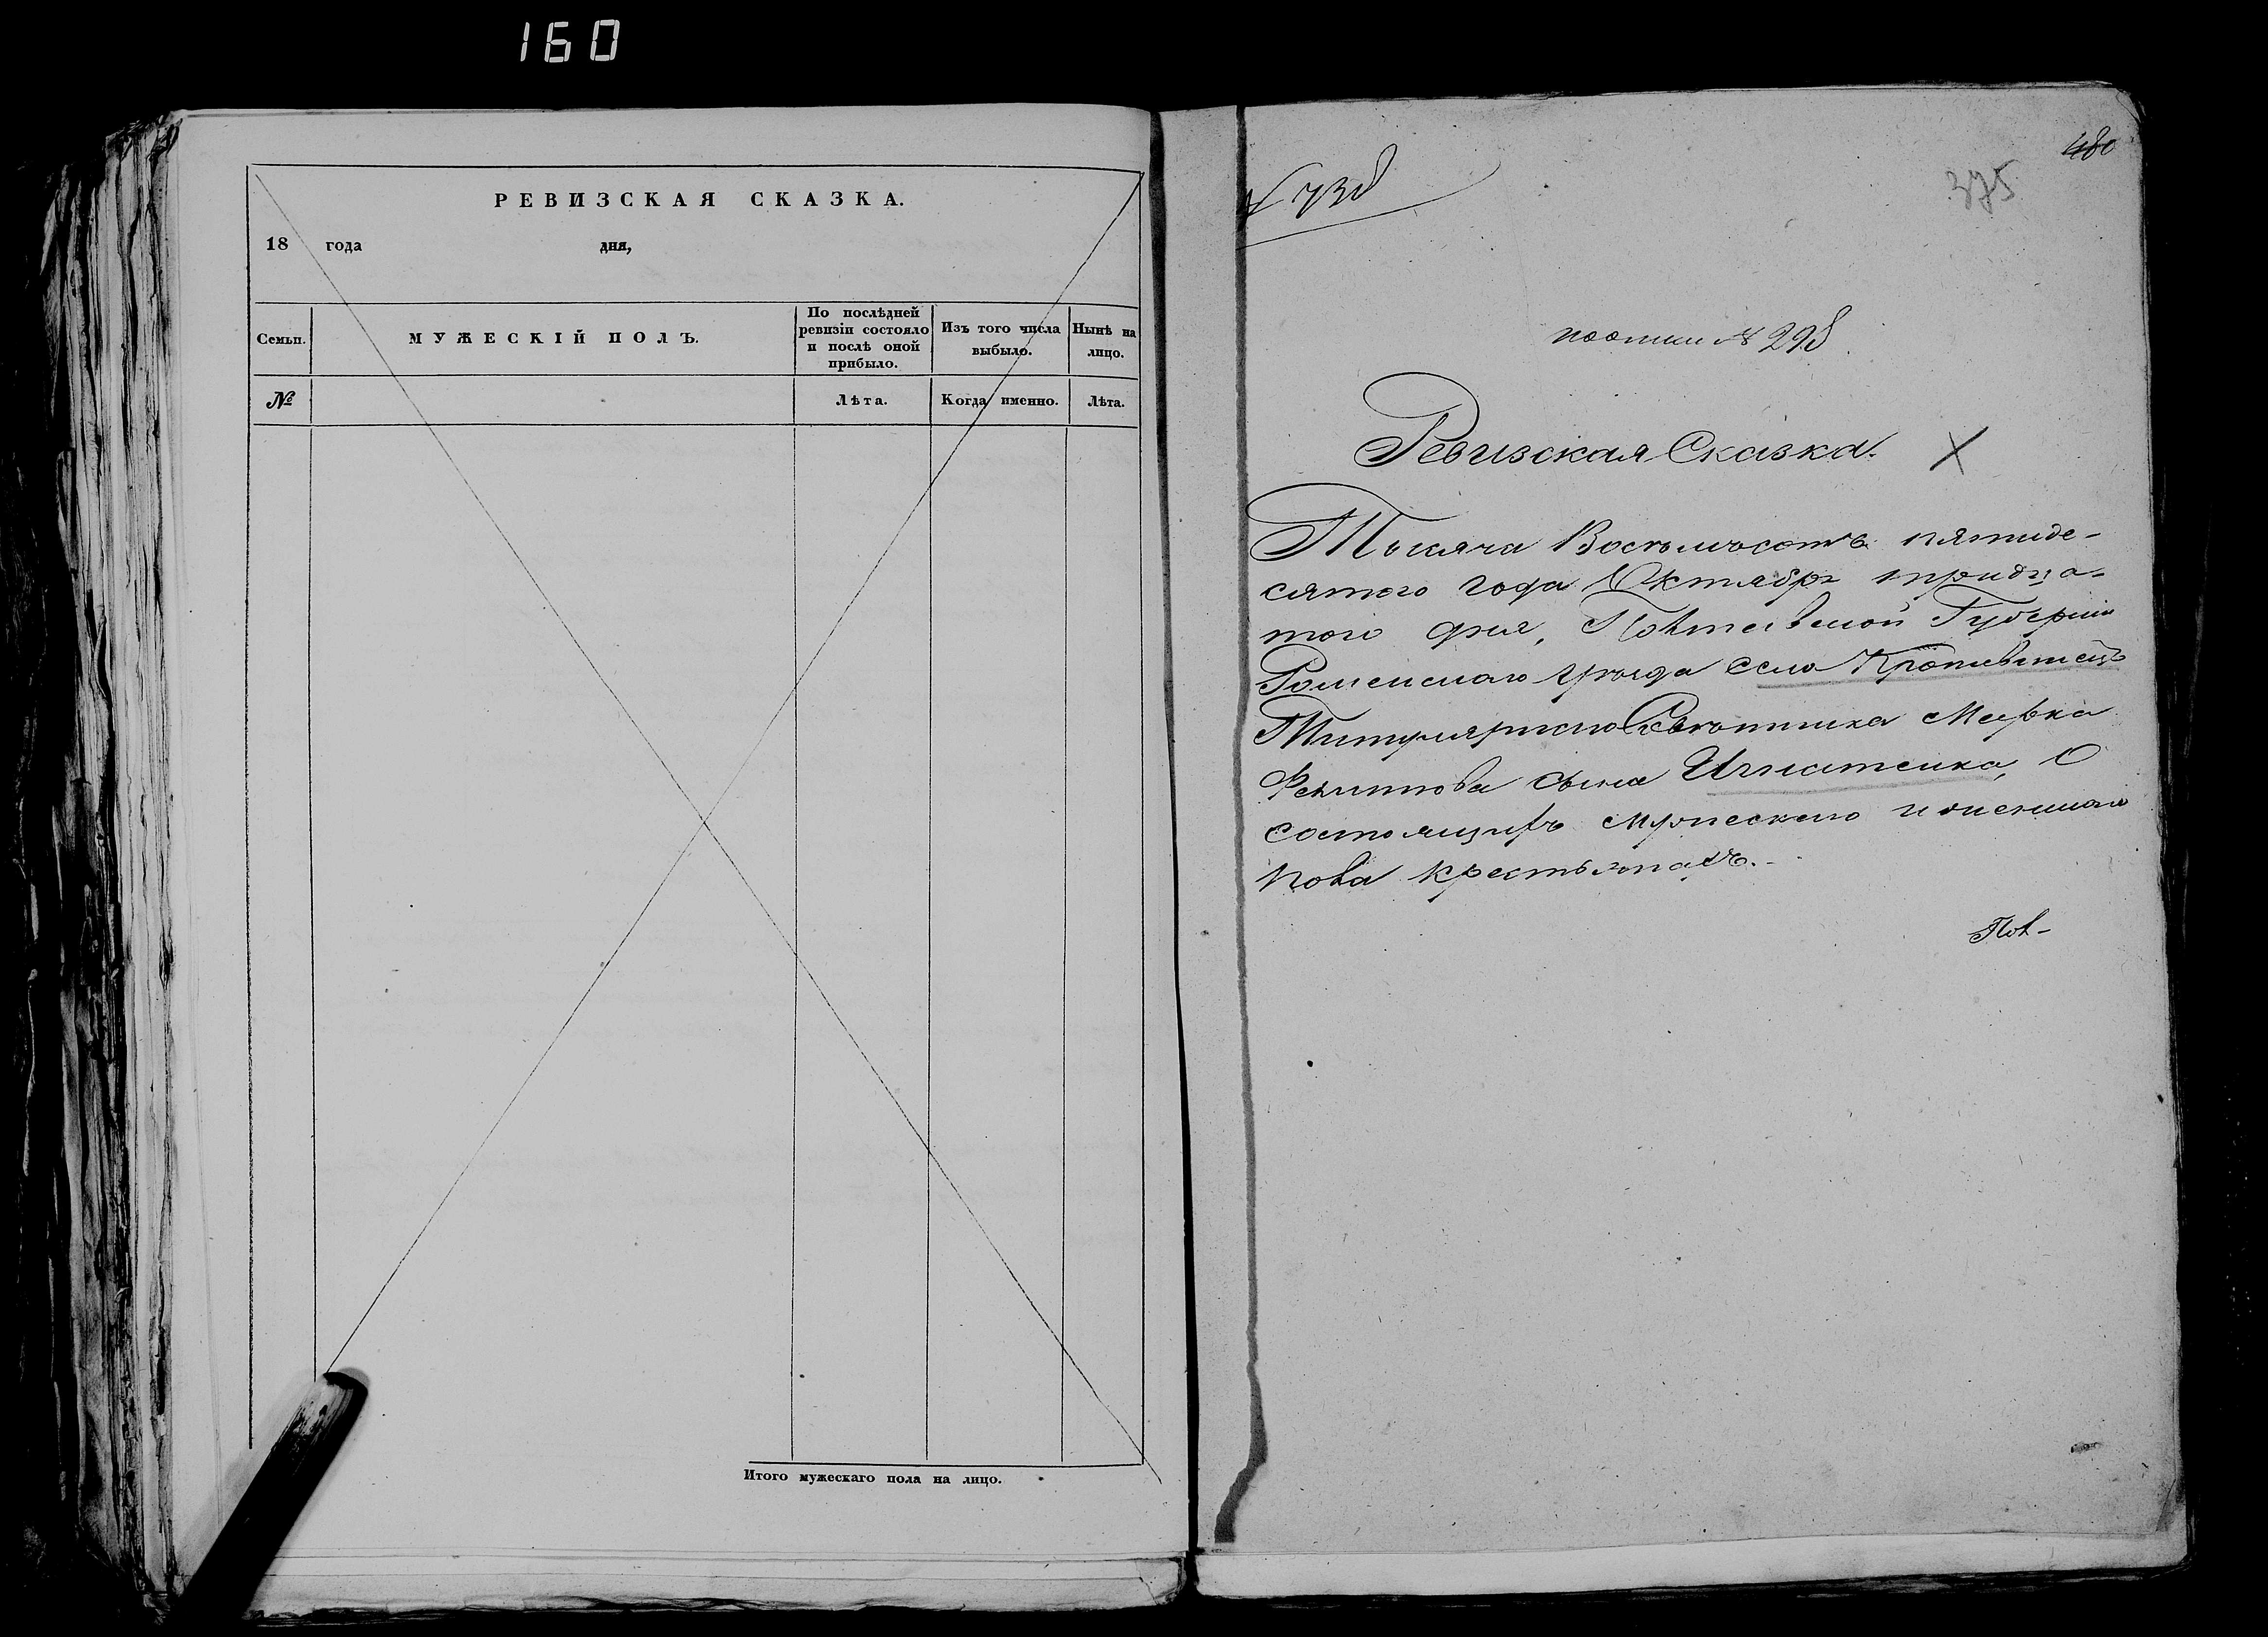 160
РЕВИЗСКАЯ СКАЗКА.
18 года дня,
Семьи.
МУЖЕСКІЙ ПОЛЪ.
По послѣдней
ревизіи состояло
и послѣ оной
прибыло.
Изъ того числа
выбыло.
Нынѣ на
лицо.
№
Лѣта.
Когда именно.
Лѣта.
Итого мужескаго пола на лицо.
480
375
Ревизская Сказка.
Тысяча Восемьсотъ пятиде-
сятого года Октября тридца-
того дня, Полтавской Губерніи
Роменскаго уѣзда села
Титулярнаго Совѣтника Марка
сына Игнатенка, О
состоящихъ мужескаго и женскаго
пола крестьянахъ.
Пол-